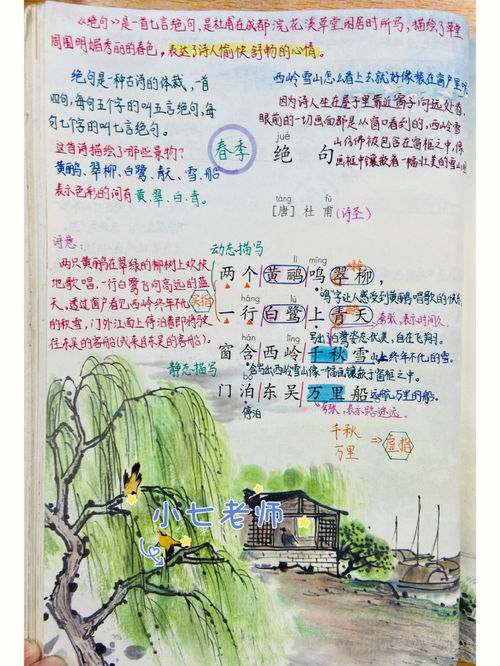 《绝句》是一首七言绝句,是杜甫在成都浣花溪草堂闲居时所写,描绘了草堂
周围明媚秀丽的春色,表达了诗人愉快舒畅的心情。
绝句是一种古诗的体裁,一首
四句,每句五个字的叫五言绝句,每
句七个字的叫七言绝句。
这首诗描绘了哪些景物?
黄鹂、翠柳、白鹭、青天、雪、船
表示色彩的词有黄、翠、白、青。
西岭雪山怎么看上去就好像装在窗户里呢
因为诗人坐在屋子里靠近窗子向远处看,
眼前的一切画面都是从窗口看到的,西岭雪
山仿佛被包含在窗框之中,像
画框中镶嵌着一幅壮美的雪山图
春季
jué
绝 句
táng fǔ
[唐] 杜 甫 (诗圣)
诗意:
两只黄鹂在翠绿的柳树上欢快
地歌唱,一行白鹭飞向高远的蓝
天。透过窗户看见西岭终年不化
的积雪,门外江面上停泊着即将驶
往东吴的客船(或来自东吴的客船)。
动态描写
lí míng
两个黄鹂鸣翠柳,
鸣字让人感受到黄鹂唱歌的快乐
háng lù
一行白鹭上青天。
写出白鹭姿态优美,自在飞翔。
实指
夸张,表示时间久
窗含西岭千秋雪
山上终年不化的雪。
含写出西岭雪山像一幅画镶嵌于窗框之中。
静态描写
门泊东吴万里船
远航万里的船。
停泊
夸张,表示路途遥远
千秋
万里
⇒虚指
小七老师